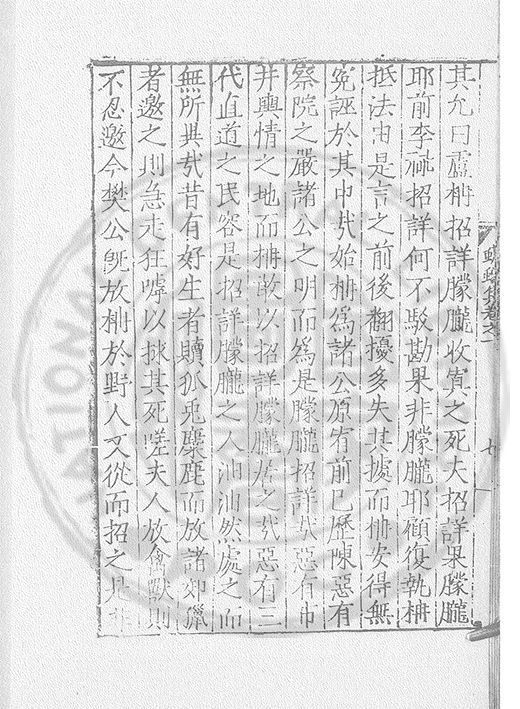 其允曰盧柟招詳朦朧收寘之死夫招詳果朦朧
耶前李祕招詳何不駁勘果非朦朧耶顧復執柟
抵法由是言之前後翻擾多失其據而柟安得無
冤誣於其中哉始柟爲諸公原宥前已歷陳惡有
察院之嚴諸公之明而爲是朦朧招詳哉惡有市
井輿情之地而柟敢以招詳朦朧居之哉惡有三
代直道之民容是招詳朦朧之人汕汕然處之而
無所畏哉昔有好生者贖狐兔麋鹿而放諸郊獵
者邀之則急走狂噑以救其死嗟夫人放禽獸則
不忍邀今樊公旣放柟於野人又從而招之是非
蠛蠓集卷之一
七